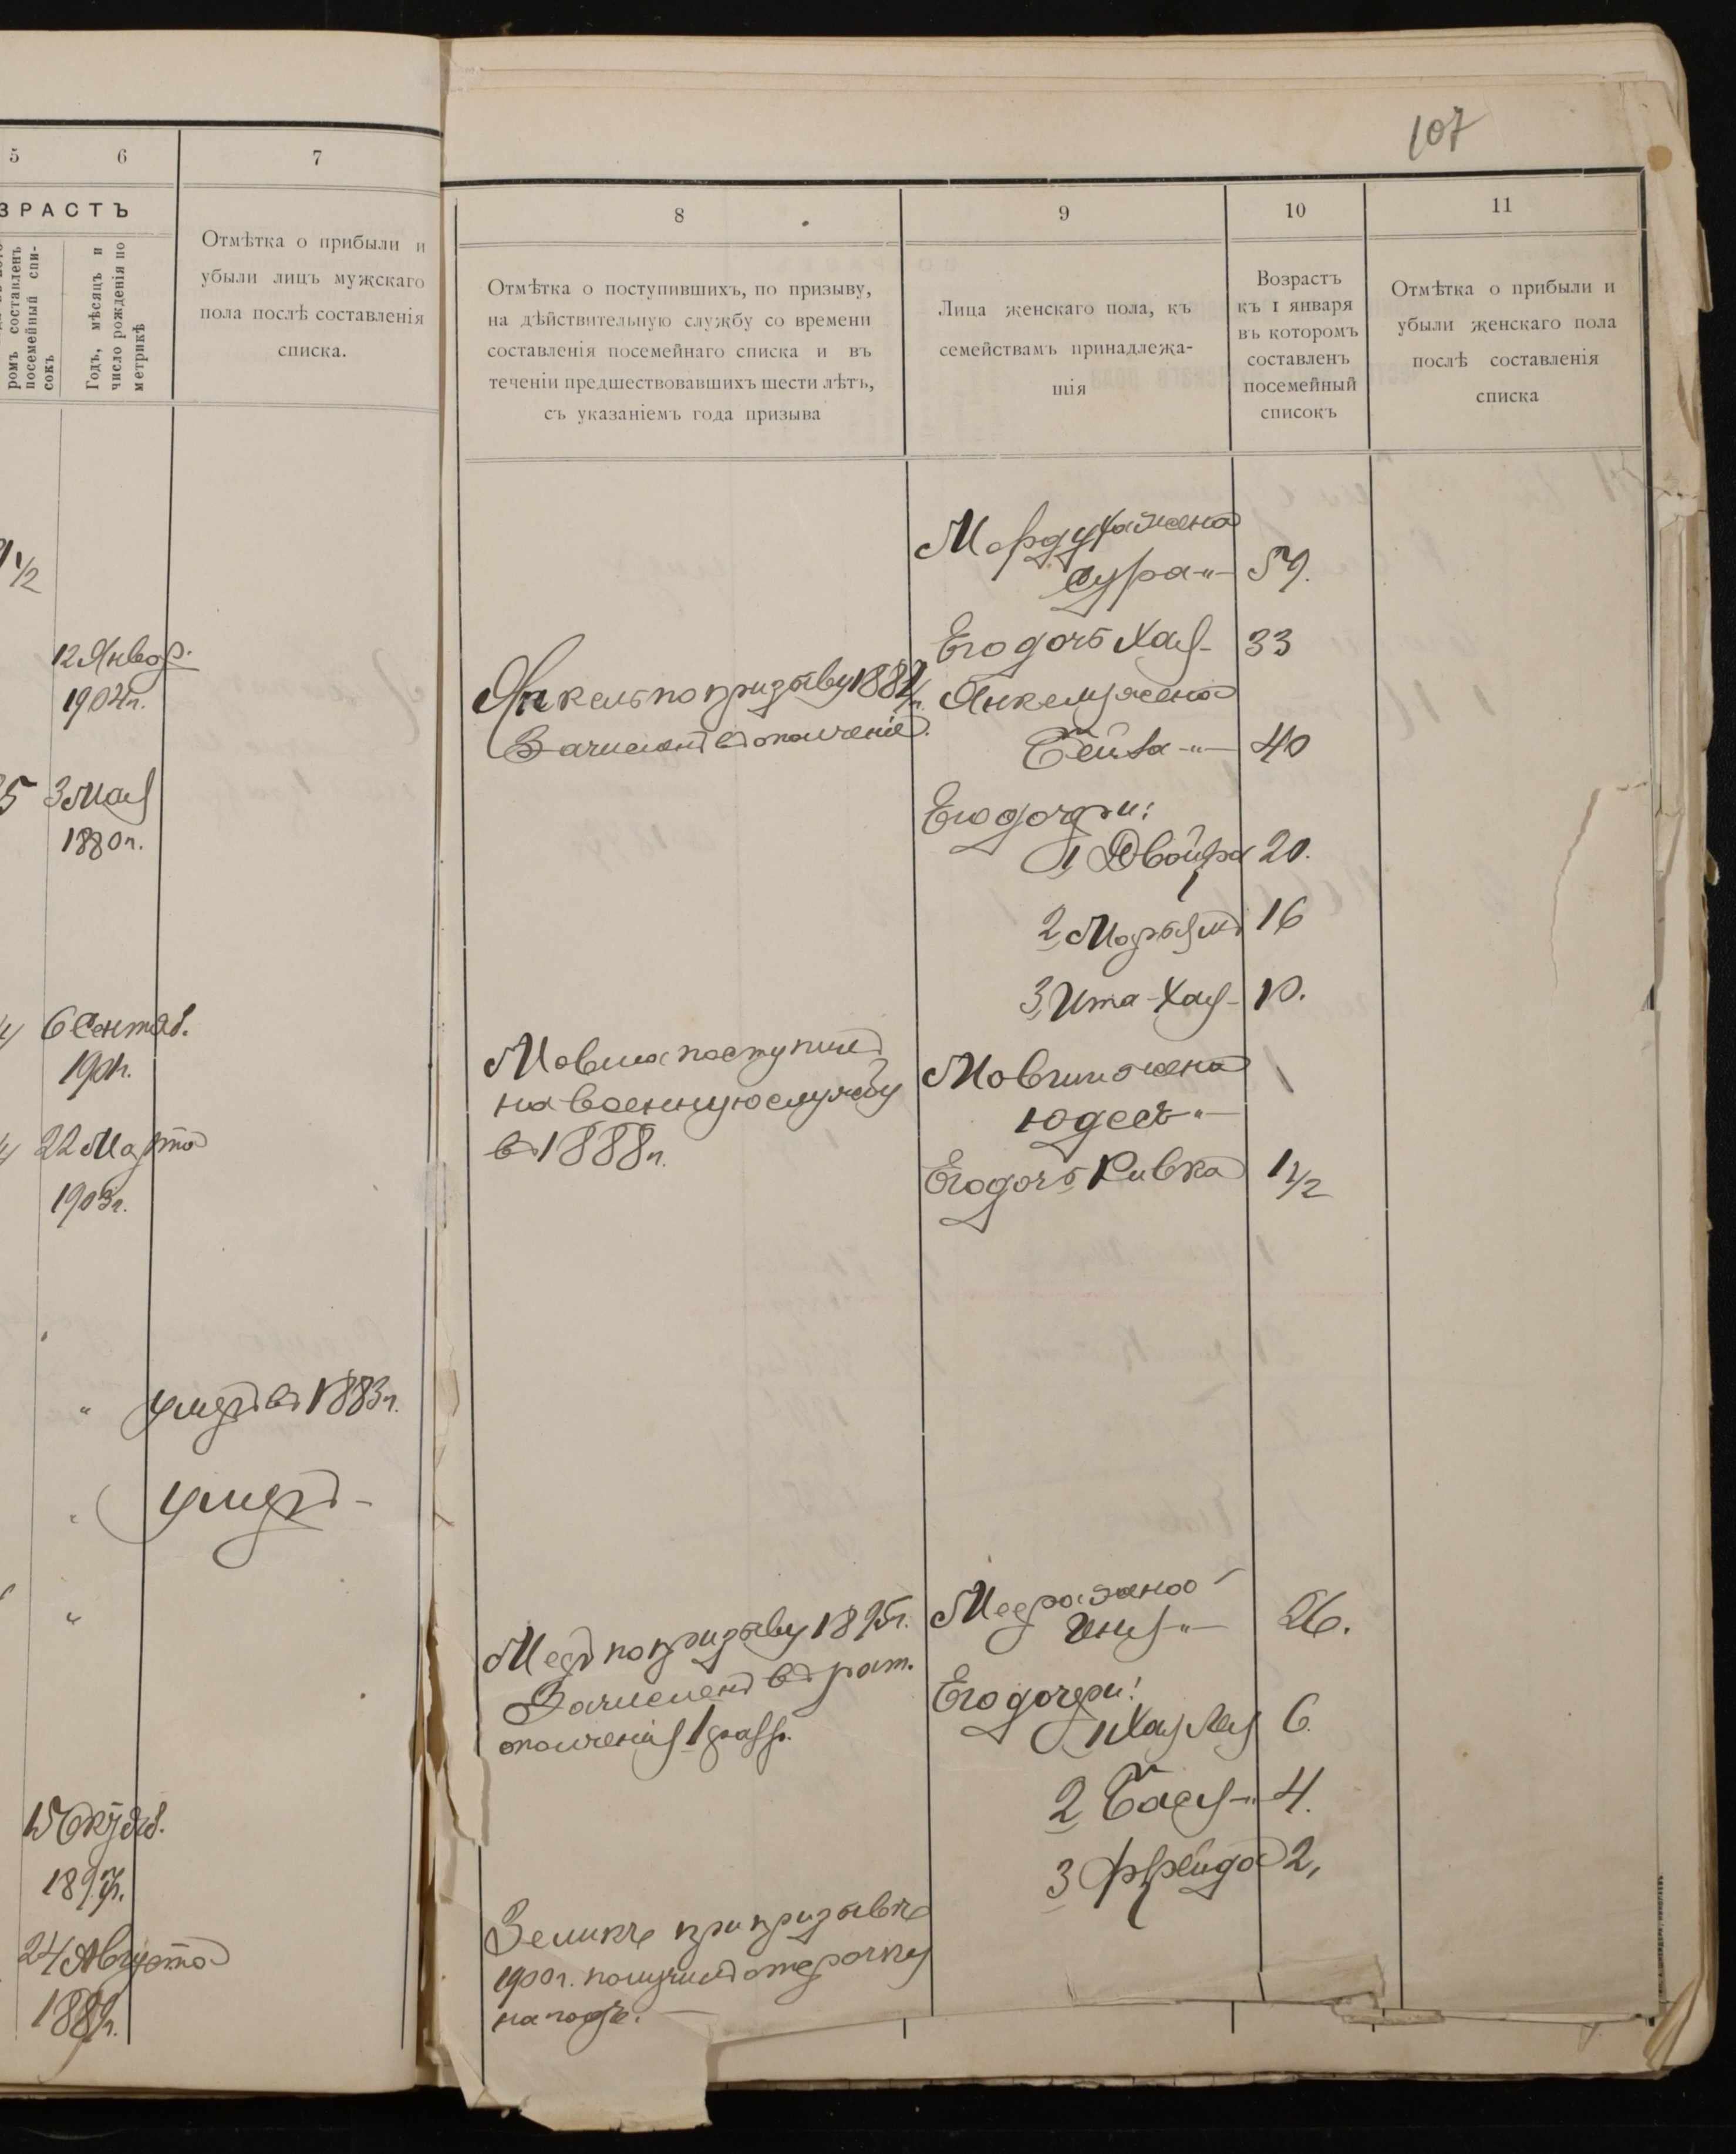 107
5
6
7
ЗРАСТЪ
ромъ составленъ
посемейный спи-
сокъ
Годъ, мѣсяцъ и
число рожденія по
метрикѣ
Отмѣтка о прибыли и
убыли лицъ мужскаго
пола послѣ составленія
списка.
1/2
12 Январ.
1902 г.
5 3 Мая
1880 г.
6 Сентяб.
1901 г.
22 Марта
1903 г.
" умеръ въ 1883 г.
" умеръ -
"
15 Октяб.
24 Августа
8
9
10
11
Отмѣтка о поступившихъ, по призыву,
на дѣйствительную службу со времени
составленія посемейнаго списка и въ
теченіи предшествовавшихъ шести лѣтъ,
съ указаніемъ года призыва
Лица женскаго пола, къ
семействамъ принадлежа-
щія
Возрастъ
къ 1 января
въ которомъ
составленъ
посемейный
списокъ
Отмѣтка о прибыли и
убыли женскаго пола
послѣ составленія
списка
Мордуха жена
Сура -"- 59.
Его дочь Хая - 33
Янкель по призыву
Зачисленъ въ ополченіе.
Янкеля жена
Бейла -"- 40
Его дочери:
1 Двойра 20.
2 Марьямъ 16
3 Ита-Хая - 10.
Мовша поступилъ
на военную службу
въ 1888 г.
Мовши жена
Юдесъ -"-
Его дочь Ривка 1 1/2
Меера жена
26.
Меръ по призыву 1895 г.
Зачисленъ въ рат.
ополченія 1 разр.
Его дочери:
1 Хая Лея 6.
2 Бася -"- 4.
3 Фрейда 2,
Зеликъ при призывѣ
1900 г. получилъ отсрочку
на годъ.